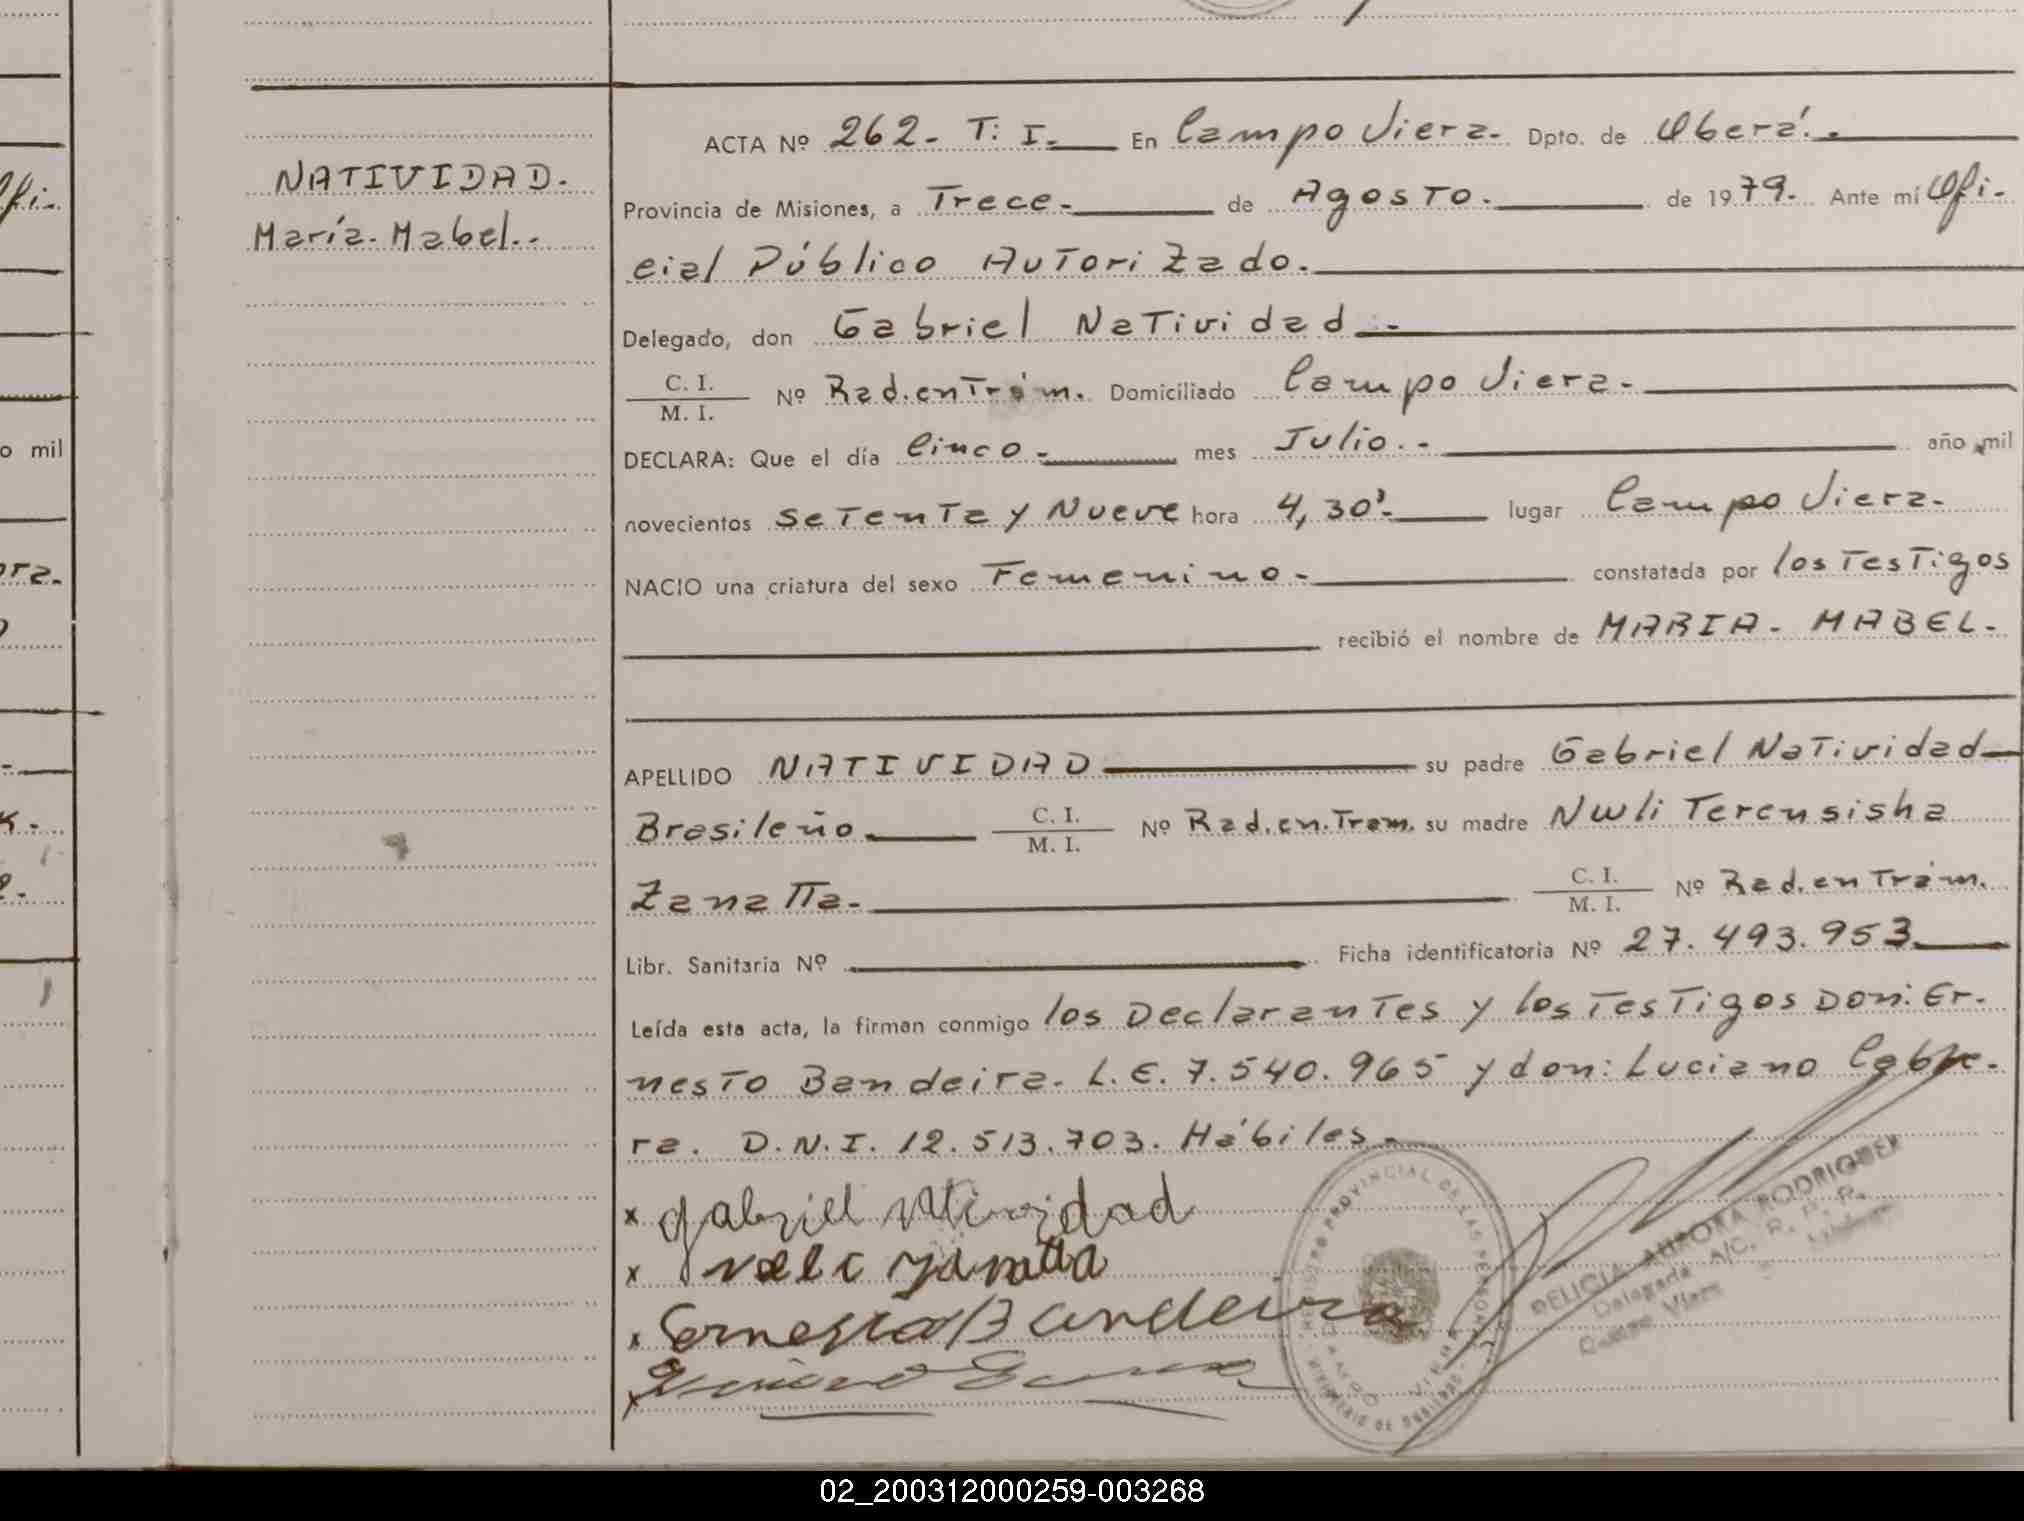 ACTA Nº 262.- T: I.- En Campo Viera.- Dpto. de Oberá.-
NATIVIDAD.
Provincia de Misiones, a Trece.- de Agosto.- de 1979.- Ante mí Ofi-
María. Mabel.-
cial Público Autorizado.-
Delegado, don Gabriel Natividad.-
C. I.
M. I.
Nº Rad.en Trám. Domiciliado Campo Viera.-
o mil
DECLARA: Que el día Cinco.- mes Julio.- año mil
novecientos Setenta y Nueve hora 4,30'.- lugar Campo Viera.-
NACIO una criatura del sexo Femenino.- constatada por los Testigos
recibió el nombre de MARIA. MABEL.-
APELLIDO NATIVIDAD su padre Gabriel Natividad
Brasileño. C. I.
M. I.
Nº Rad.en.Tram. su madre Nwli Terensisha
Zanatta.- C. I.
M. I.
Nº Rad.en Trám.
Libr. Sanitaria Nº Ficha identificatoria Nº 27.493.953
Leída esta acta, la firman conmigo los Declarantes y los Testigos Don: Er-
nesto Bandeira. L.E. 7.540.965 y don: Luciano Cabre-
ra. D.N.I. 12.513.703. Hábiles.-
x gabriel natividad
x neli zanatta
x Ernesto Bandeira
x
REGISTRO PROVINCIAL DE LAS PERSONAS
CAMPO VIERA
MINISTERIO DE GOBIERNO
DELICIA AURORA RODRIGUEZ
Delegada A/C. R. P. P.
Campo Viera
02_200312000259-003268